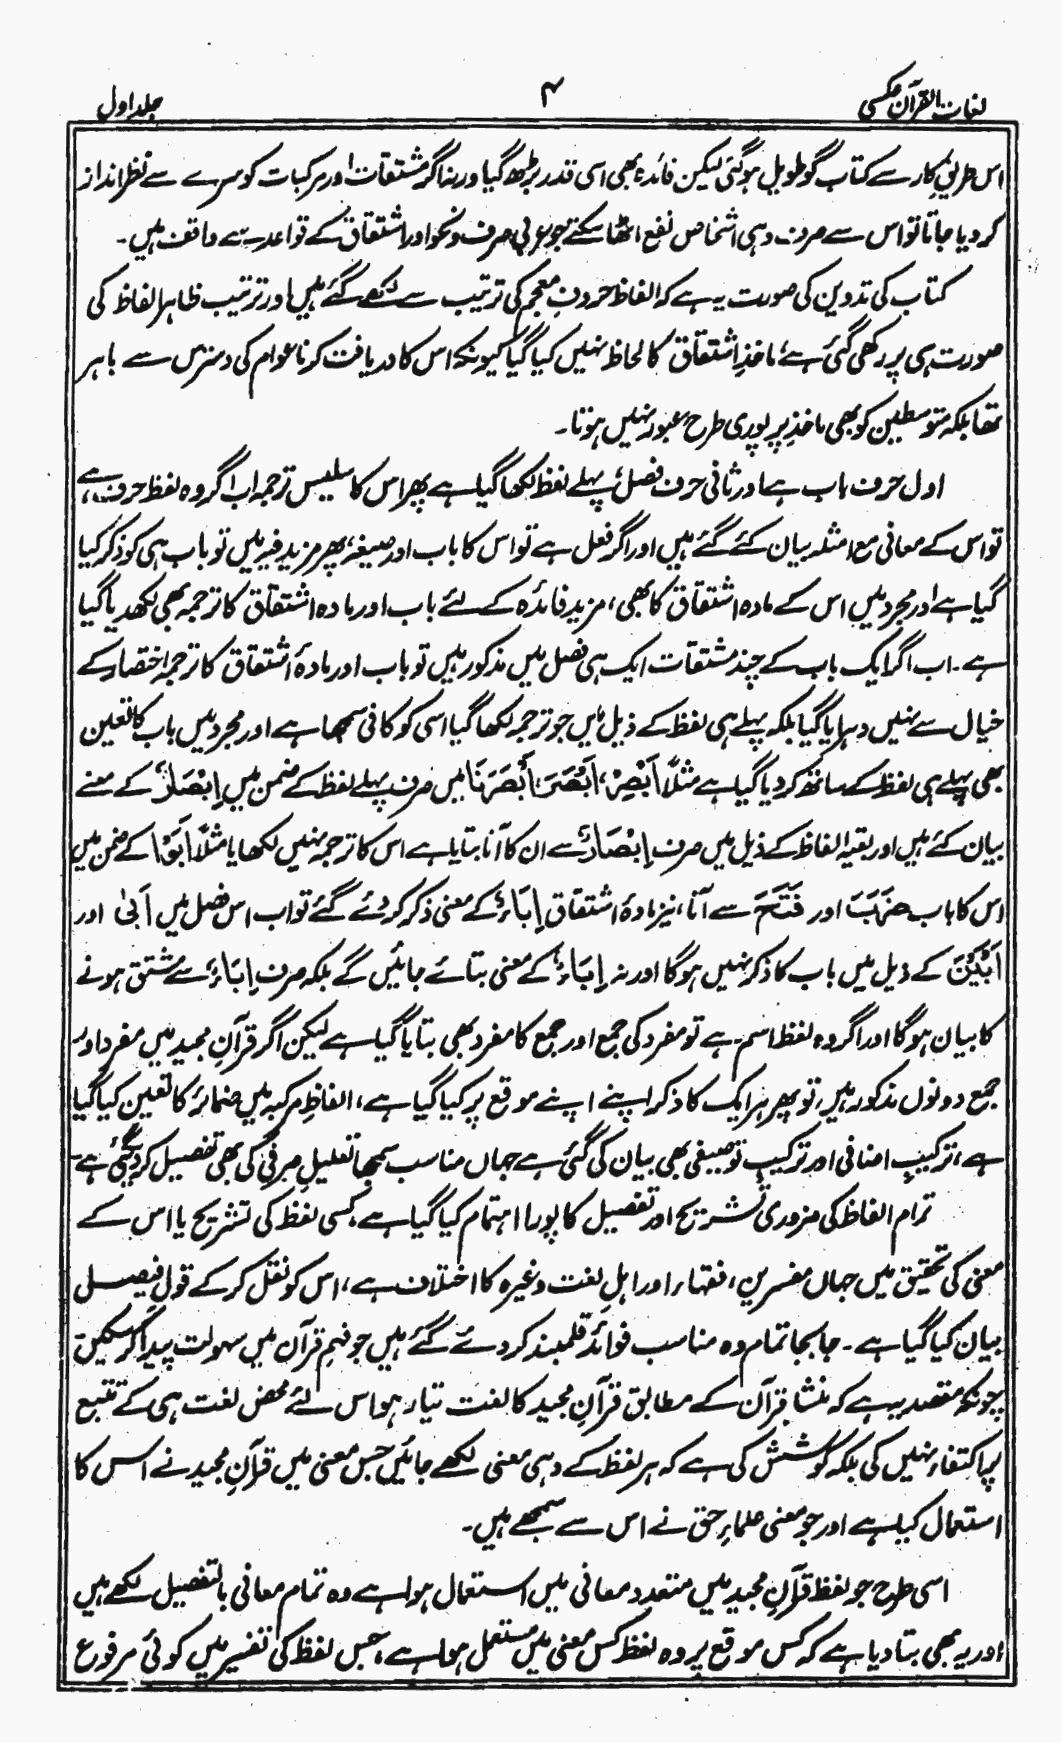 لغات القرآن عکسی
۴
جلد اول
اس طریقِ کار سے کتاب گو طویل ہوگئی لیکن فائدہ بھی اسی قدر بڑھ گیا ورنہ اگر مشتقات اور مرکبات کو سرے سے نظر انداز
کر دیا جاتا تو اس سے صرف وہی اشخاص نفع اٹھا سکتے جو عربی صرف و نحو اور اشتقاق کے قواعد سے واقف ہیں۔
کتاب کی تدوین کی صورت یہ ہے کہ الفاظ حروفِ معجم کی ترتیب سے لکھے گئے ہیں اور ترتیب ظاہر الفاظ کی
صورت ہی پر رکھی گئی ہے، ماخذِ اشتقاق کا لحاظ نہیں کیا گیا کیونکہ اس کا دریافت کرنا عوام کی دسترس سے باہر
تھا بلکہ متوسطین کو بھی ماخذ پر پوری طرح عبور نہیں ہوتا۔
اول حرف باب ہے اور ثانی حرف فصل، پہلے لفظ لکھا گیا ہے پھر اس کا سلیس ترجمہ اب اگر وہ لفظ حرف ہے،
تو اس کے معانی مع امثلہ بیان کئے گئے ہیں اور اگر فعل ہے تو اس کا باب اور صیغہ، پھر مزید فیہ میں تو باب ہی کو ذکر کیا
گیا ہے اور مجرد میں اس کے مادہ اشتقاق کا بھی، مزید فائدہ کے لئے باب اور مادہ اشتقاق کا ترجمہ بھی لکھدیا گیا
ہے۔ اب اگر ایک باب کے چند مشتقات ایک ہی فصل میں مذکور ہیں تو باب اور مادۂ اشتقاق کا ترجمہ اختصار کے
خیال سے نہیں دہرایا گیا بلکہ پہلے ہی لفظ کے ذیل میں جو ترجمہ لکھا گیا اسی کو کافی سمجھا ہے اور مجرد میں باب کا تعین
بھی پہلے ہی لفظ کے ساتھ کر دیا گیا ہے مثلاً اَبْصِرْ، اَبْصَرَ، اَبْصَرْنَا میں صرف پہلے لفظ کے ضمن میں اِبْصَارٌ کے معنے
بیان کئے ہیں اور بقیہ الفاظ کے ذیل میں صرف اِبْصَارٌ سے ان کا آنا بتایا ہے اس کا ترجمہ نہیں لکھا یا مثلاً اَبَوْا کے ضمن میں
اس کا باب ضَرَبَ اور فَتَحَ سے آنا، نیز مادۂ اشتقاق اِبَاءٌ کے معنی ذکر کر دئے گئے تو اب اس فصل میں اَبیٰ اور
اَبَیْنَ کے ذیل میں باب کا ذکر نہیں ہوگا اور نہ اِبَاءٌ کے معنی بتائے جائیں گے بلکہ صرف اِبَاءٌ سے مشتق ہونے
کا بیان ہوگا اور اگر وہ لفظ اسم ہے تو مفرد کی جمع اور جمع کا مفرد بھی بتایا گیا ہے لیکن اگر قرآنِ مجید میں مفرد اور
جمع دونوں مذکور ہیں، تو پھر ہر ایک کا ذکر اپنے اپنے موقع پر کیا گیا ہے، الفاظِ مرکبہ میں ضمائر کا تعین کیا گیا
ہے، ترکیبِ اضافی اور ترکیبِ توصیفی بھی بیان کی گئی ہے جہاں مناسب سمجھا تعلیلِ صرفی کی بھی تفصیل کر دی گئی ہے۔
تمام الفاظ کی ضروری تشریح اور تفصیل کا پورا اہتمام کیا گیا ہے، کسی لفظ کی تشریح یا اس کے
معنی کی تحقیق میں جہاں مفسرین، فقہاء اور اہلِ لغت وغیرہ کا اختلاف ہے، اس کو نقل کر کے قولِ فیصل
بیان کیا گیا ہے۔ جا بجا تمام وہ مناسب فوائد قلمبند کر دئے گئے ہیں جو فہمِ قرآن میں سہولت پیدا کر سکیں
چونکہ مقصد یہ ہے کہ منشاءِ قرآن کے مطابق قرآنِ مجید کا لغت تیار ہو اس لئے محض لغت ہی کے تتبع
پر اکتفاء نہیں کی بلکہ کوشش کی ہے کہ ہر لفظ کے وہی معنی لکھے جائیں جس معنی میں قرآنِ مجید نے اس کا
استعمال کیا ہے اور جو معنی علماءِ حق نے اس سے سمجھے ہیں۔
اسی طرح جو لفظ قرآنِ مجید میں متعدد معانی میں استعمال ہوا ہے وہ تمام معانی بالتفصیل لکھے ہیں
اور یہ بھی بتا دیا ہے کہ کس موقع پر وہ لفظ کس معنی میں مستعمل ہوا ہے، جس لفظ کی تفسیر میں کوئی مرفوع